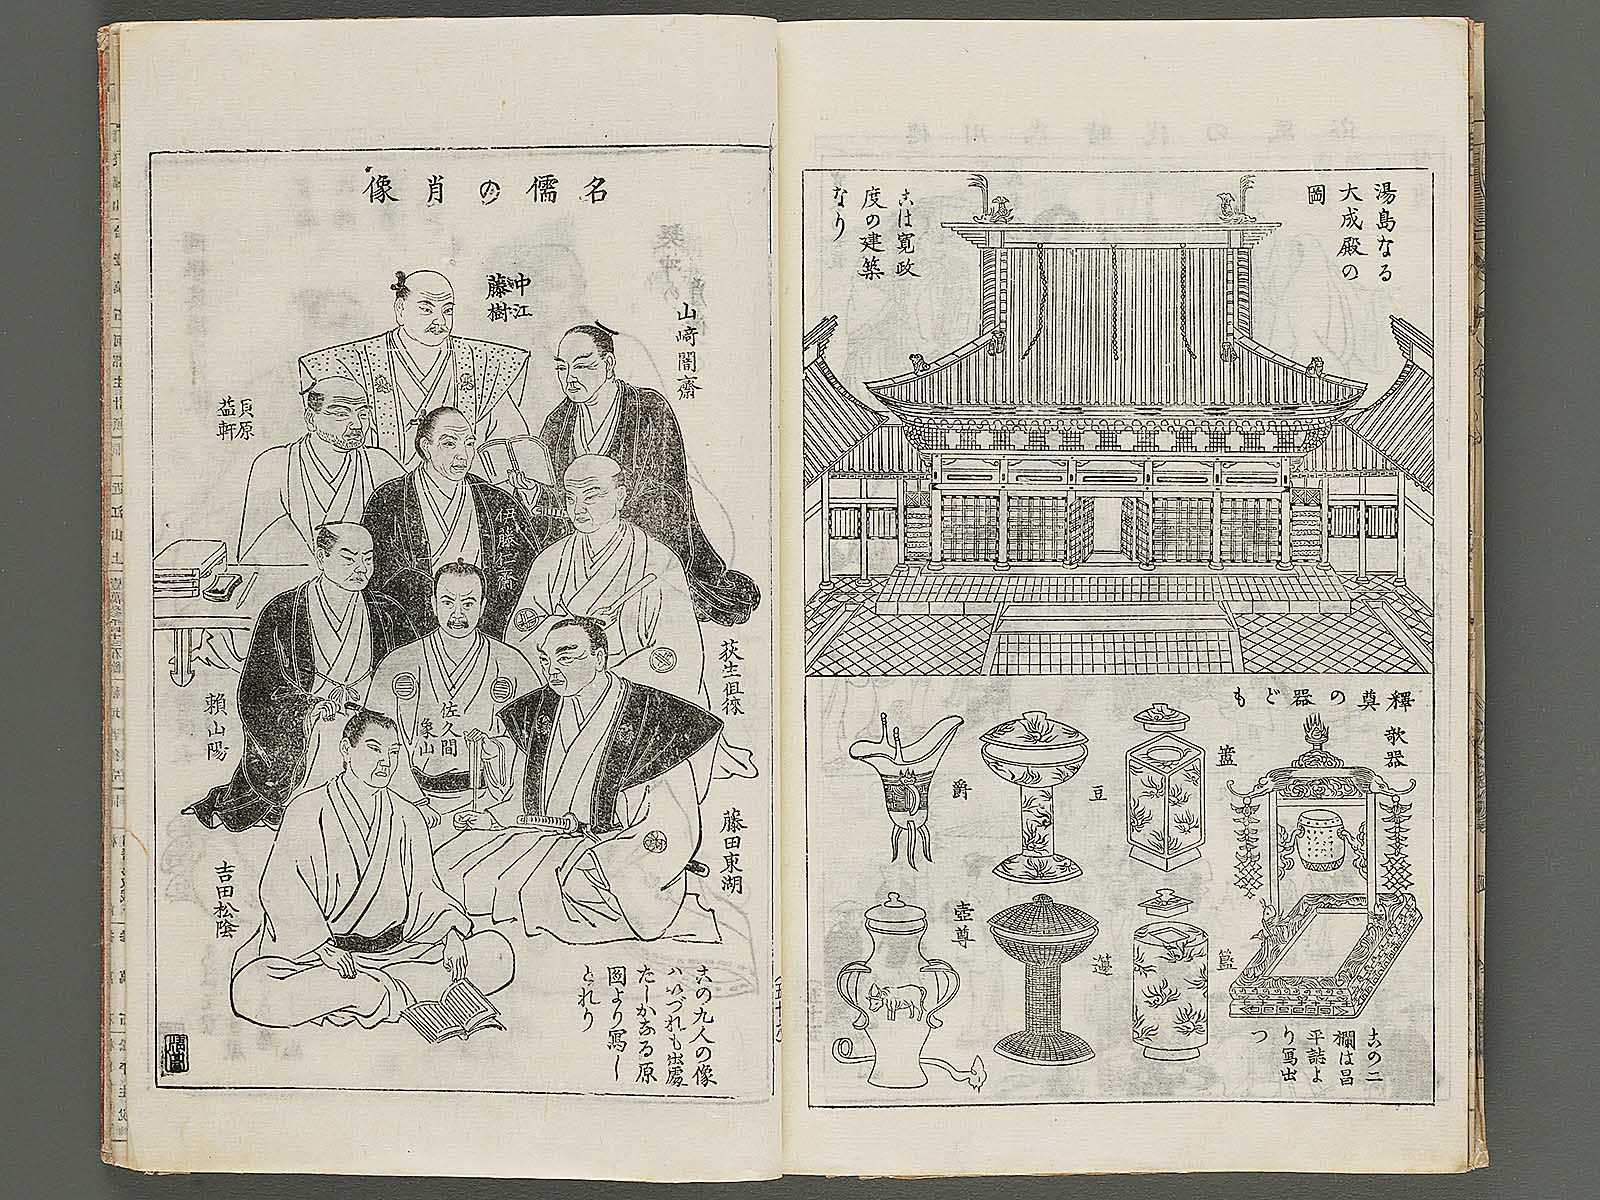 湯島なる
大成殿の
圖
古は寛政
度の建築
なり
釋奠の器ども
欹器
簠
豆
爵
簋
籩
壺尊
古の二
欄は昌
平誌よ
り寫出
つ
名儒の肖像
山﨑闇齋
中江
藤樹
貝原
益軒
伊藤仁斎
荻生徂徠
佐久間
象山
賴山陽
藤田東湖
吉田松陰
古の九人の像
ハいづれも出處
たしかなる原
圖より寫し
とれり